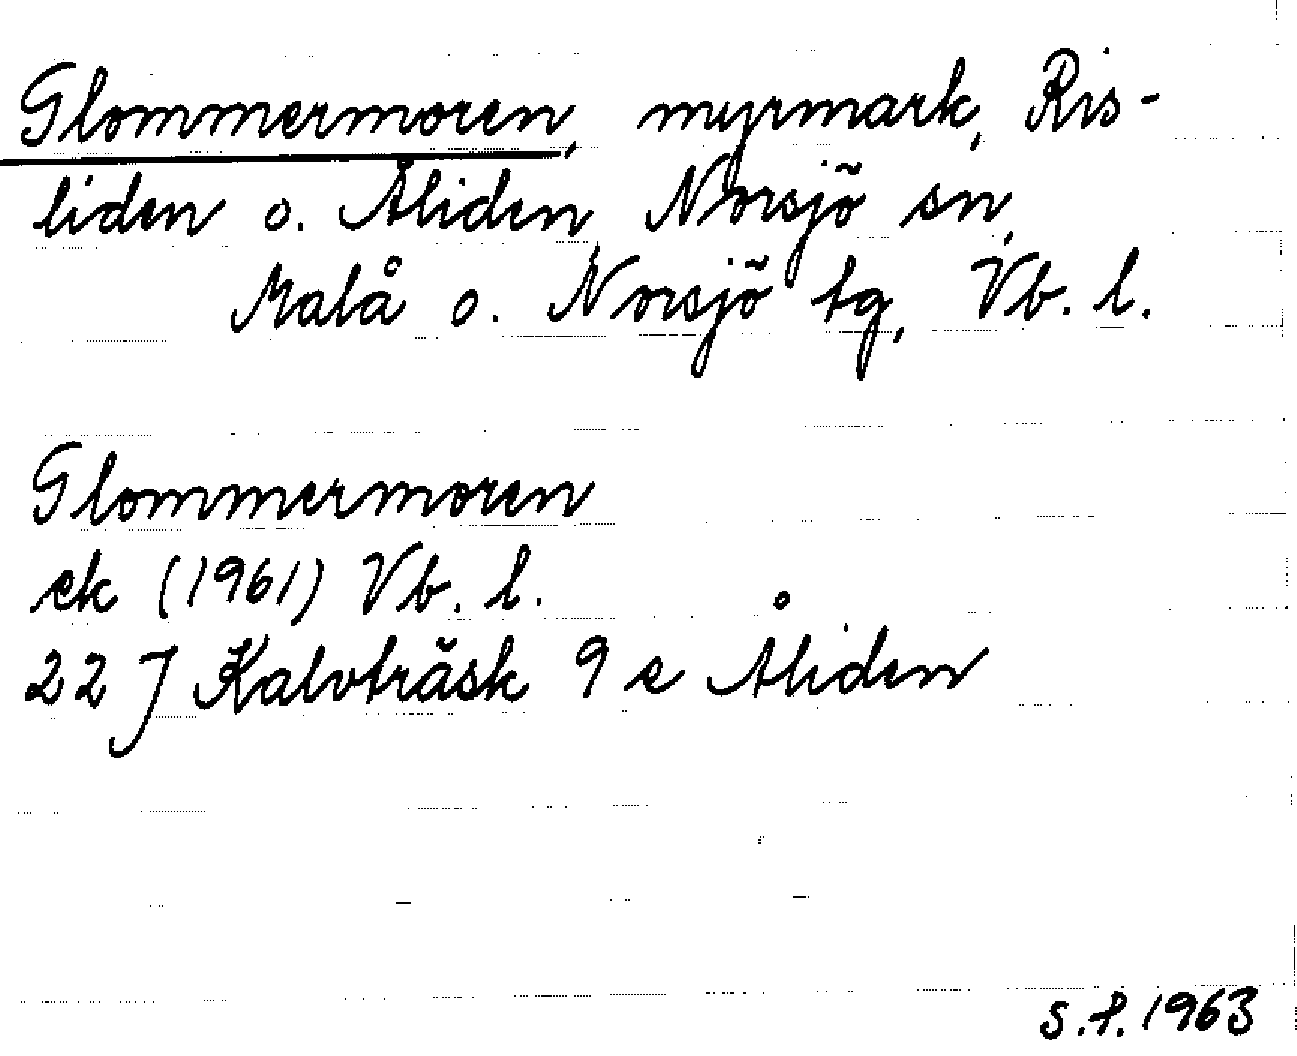 Glommermoren, myrmark, Ris-
liden o. Åliden, Norsjö sn,
Malå o. Norsjö tg, Vb. l.
Glommermoren
ek (1961) Vb. l.
22 J Kalvträsk 9 e Åliden
s.f. 1963